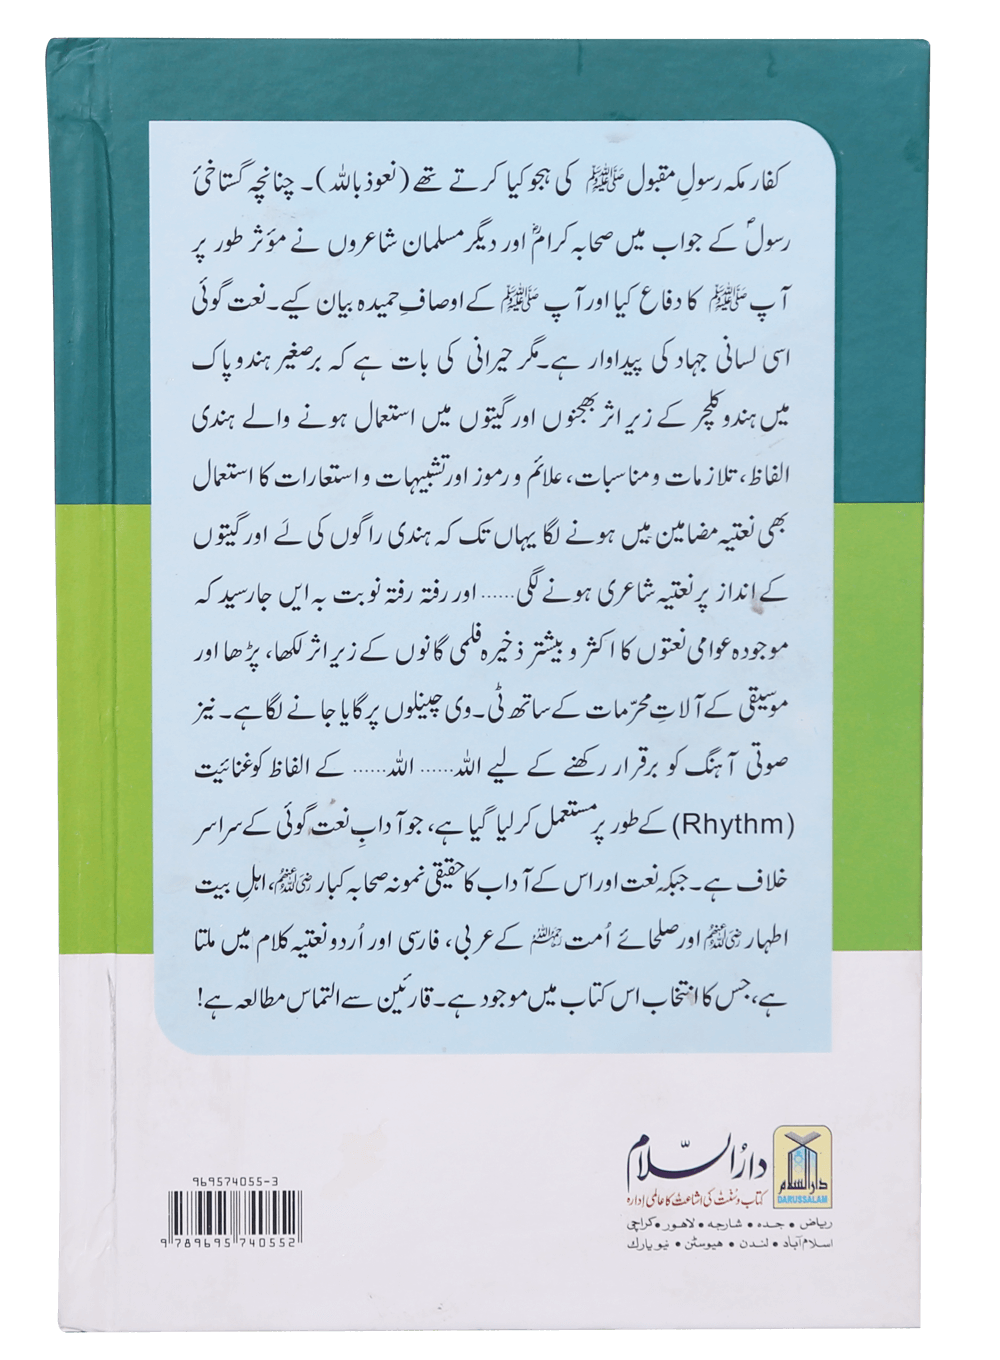 کفار مکہ رسولِ مقبول ﷺ کی ہجو کیا کرتے تھے (نعوذ باللہ)۔ چنانچہ گستاخیٔ
رسولؐ کے جواب میں صحابہ کرامؓ اور دیگر مسلمان شاعروں نے مؤثر طور پر
آپ ﷺ کا دفاع کیا اور آپ ﷺ کے اوصافِ حمیدہ بیان کیے۔ نعت گوئی
اسی لسانی جہاد کی پیداوار ہے۔ مگر حیرانی کی بات ہے کہ برصغیر ہندوپاک
میں ہندو کلچر کے زیرِ اثر بھجنوں اور گیتوں میں استعمال ہونے والے ہندی
الفاظ، تلازمات و مناسبات، علائم و رموز اور تشبیہات و استعارات کا استعمال
بھی نعتیہ مضامین میں ہونے لگا یہاں تک کہ ہندی راگوں کی لَے اور گیتوں
کے انداز پر نعتیہ شاعری ہونے لگی...... اور رفتہ رفتہ نوبت بہ ایں جارسید کہ
موجودہ عوامی نعتوں کا اکثر و بیشتر ذخیرہ فلمی گانوں کے زیرِ اثر لکھا، پڑھا اور
موسیقی کے آلاتِ محرّمات کے ساتھ ٹی۔وی چینلوں پر گایا جانے لگا ہے۔ نیز
صوتی آہنگ کو برقرار رکھنے کے لیے اللہ...... اللہ...... کے الفاظ کو غنائیت
(Rhythm) کے طور پر مستعمل کرلیا گیا ہے، جو آدابِ نعت گوئی کے سراسر
خلاف ہے۔ جبکہ نعت اور اس کے آداب کا حقیقی نمونہ صحابہ کبار رضی اللہ عنہم، اہلِ بیت
اطہار رضی اللہ عنہم اور صلحائے اُمت رحمہم اللہ کے عربی، فارسی اور اُردو نعتیہ کلام میں ملتا
ہے، جس کا انتخاب اس کتاب میں موجود ہے۔ قارئین سے التماس مطالعہ ہے!
دارالسّلام
کتاب و سُنّت کی اشاعت کا عالمی ادارہ
دارالسلام
DARUSSALAM
ریاض • جدہ • شارجہ • لاہور • کراچی
اسلام آباد • لندن • ہیوسٹن • نیو یارک
969574055-3
9 789695 740552